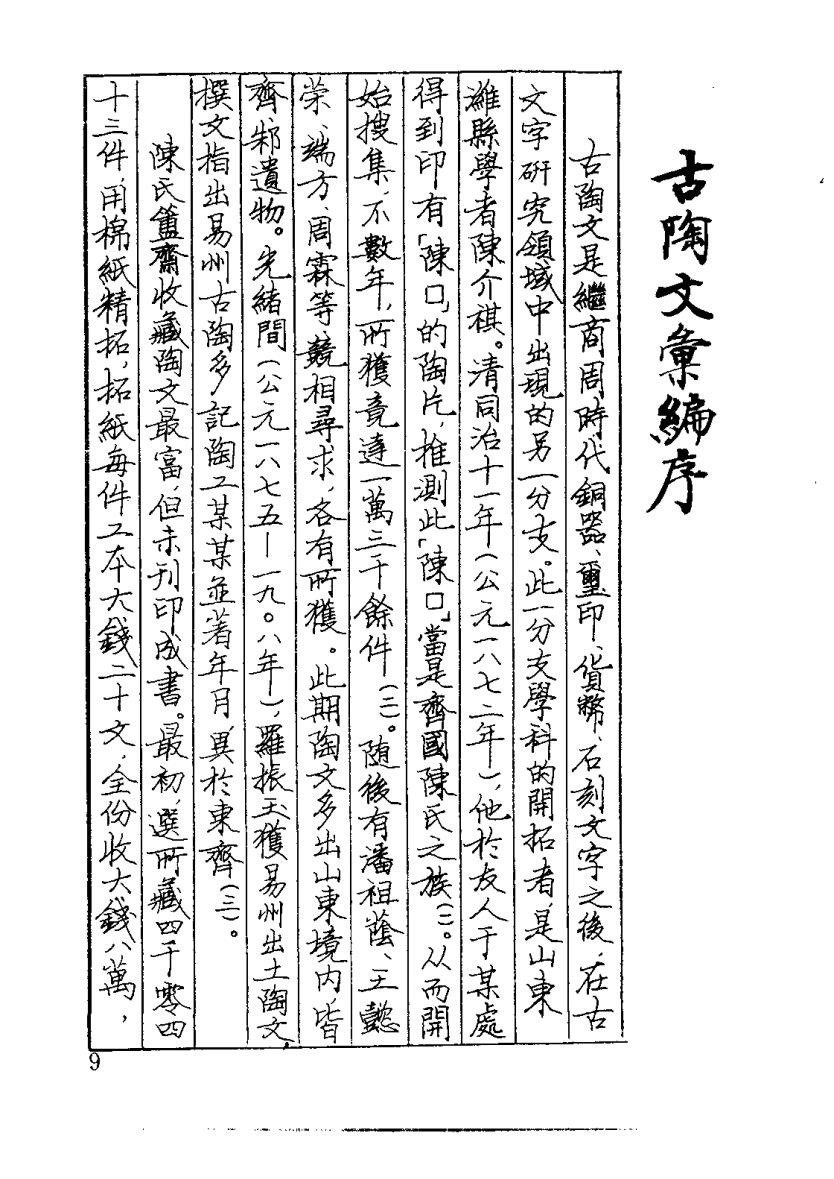 古陶文彙編序
古陶文是繼商周時代銅器、璽印、貨幣、石刻文字之後，在古
文字研究領域中出現的另一分支。此一分支學科的開拓者，是山東
濰縣學者陳介祺。清同治十一年（公元一八七二年），他於友人于某處
得到印有「陳口」的陶片，推測此「陳口」當是齊國陳氏之族（一）。从而開
始搜集，不數年，所獲竟達一萬三千餘件（二）。随後有潘祖蔭、王懿
荣、端方、周霖等，競相尋求，各有所獲。此期陶文多出山東境内，皆
齊、邾遺物。光緒間（公元一八七五—一九〇八年），羅振玉獲易州出土陶文，
撰文指出易州古陶多記陶工某某並著年月，異於東齊（三）。
陳氏簠齋收藏陶文最富，但未刊印成書。最初，選所藏四千零四
十三件，用棉紙精拓，拓紙每件工本大錢二十文，全份收大錢八萬，
9